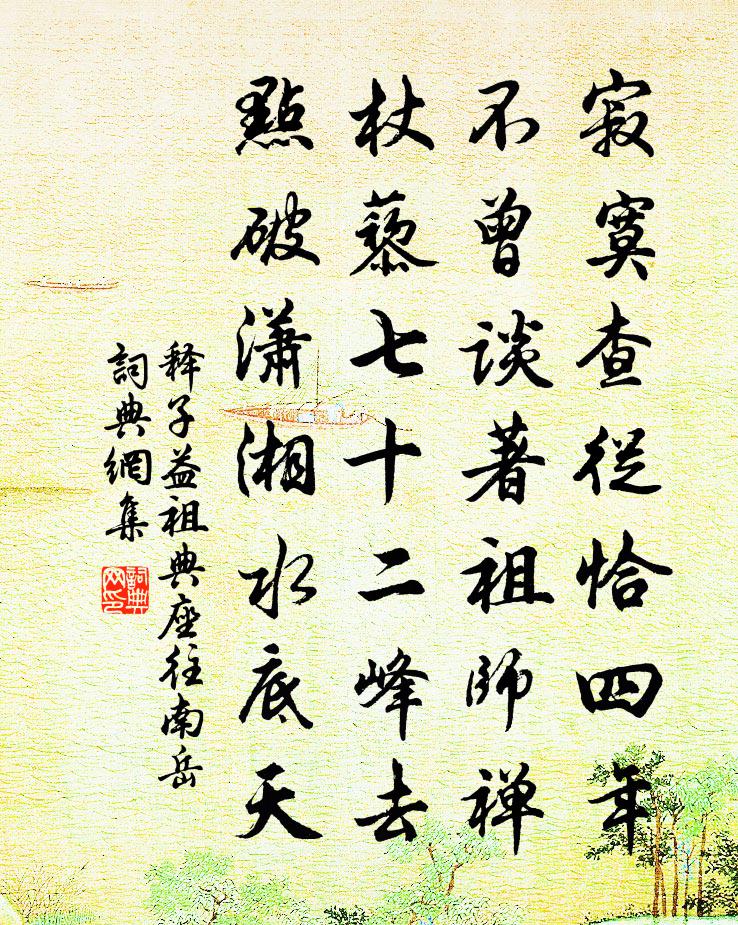 寂寞查從恰四年
不曾談著祖師禅
杖藜七十二峰去
點破瀟湘水底天
释子益祖典座往南岳
詞典網集
詞典
网印